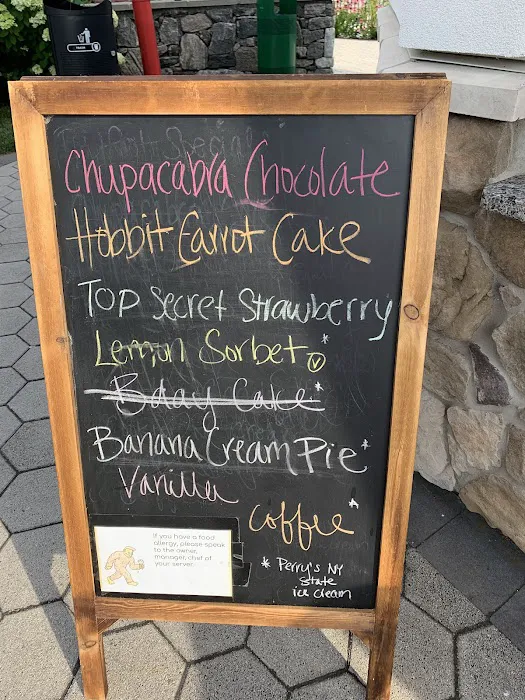 Chupacabra Chocolate
Hobbit Carrot Cake
Top Secret Strawberry
Lemon Sorbet * V
Bday Cake *
Banana Cream Pie *
Vanilla
Coffee *
* Perry's NY
State
ice cream
If you have a food
allergy, please speak
to the owner,
manager, chef or
your server.